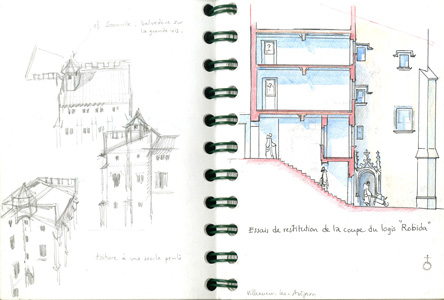 belvédère sur
la grande vis.
toiture à une seule pente
Essais de restitution de la coupe du logis "Robida"
Villeneuve-les-Avignon